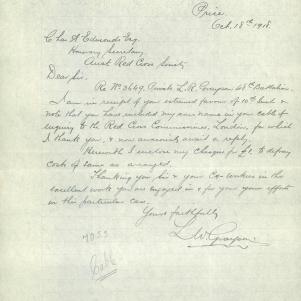 Price.
Oct. 18th 1918.
Chas A Edmonds Esq.
Honorary Secretary
Aust Red Cross Society
Dear Sir.
Re No 3649. Private L.R. Grayson 48th Battalion.
I am in receipt of your esteemed favour of 10th inst &
note that you have included my own name in your cable of
enquiry to the Red Cross Commissioner, London, for which
I thank you, & now anxiously await a reply.
Herewith I enclose my cheque for £1 to defray
costs of same as arranged.
Thanking you Sir & your Co-workers in the
excellent work you are engaged in & for your efforts
in this particular case.
Yours faithfully
L W Grayson.
7053